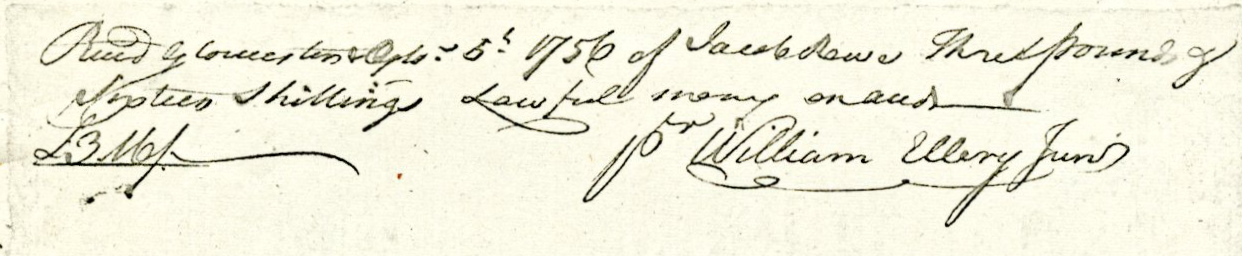 Recd Gloucester Sepbr 5th 1756 of Jacob Rowe Three pounds &
Sixteen Shillings Lawful money on acct
£3..16/- pr William Ellery Junr